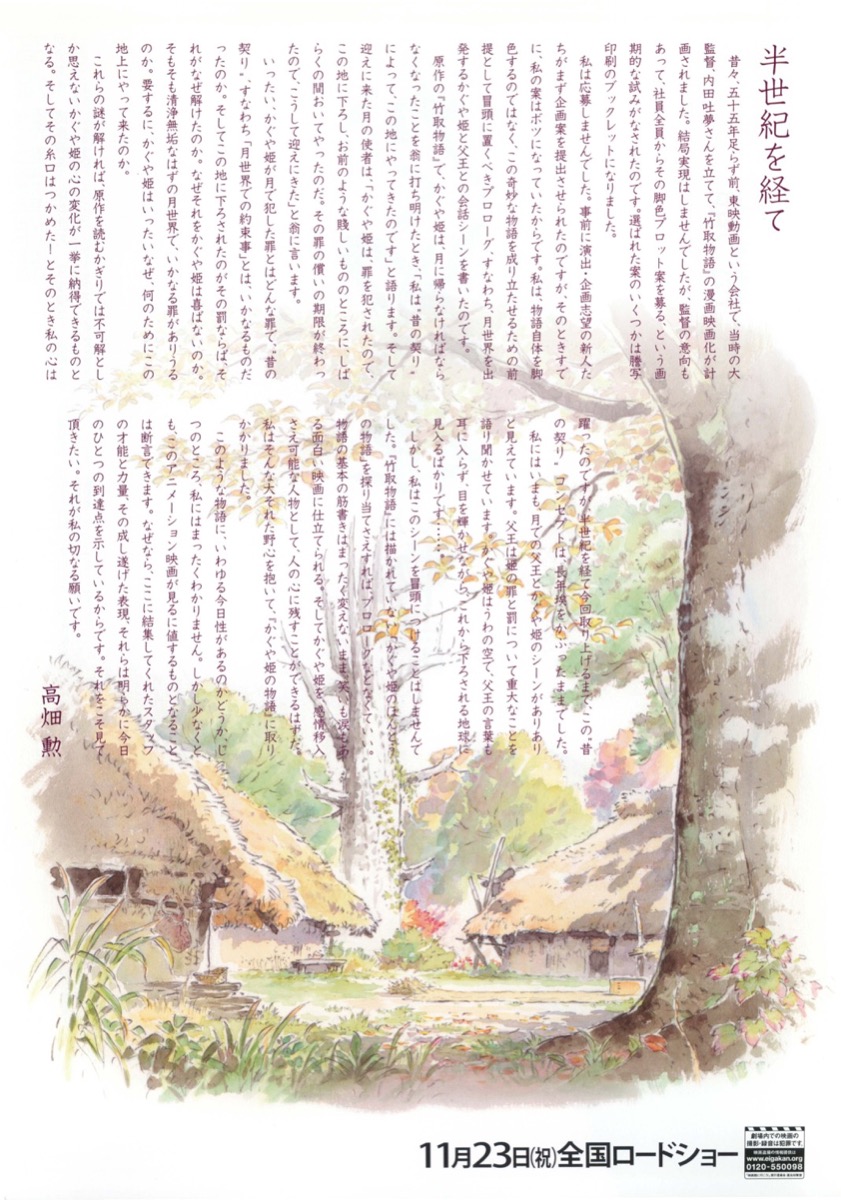 半世紀を経て
昔々、五十五年足らず前、東映動画という会社で、当時の大
監督、内田吐夢さんを立てて、『竹取物語』の漫画映画化が計
画されました。結局実現はしませんでしたが、監督の意向も
あって、社員全員からその脚色プロット案を募る、という画
期的な試みがなされたのです。選ばれた案のいくつかは謄写
印刷のブックレットになりました。
私は応募しませんでした。事前に演出・企画志望の新人た
ちがまず企画案を提出させられたのですが、そのときすで
に、私の案はボツになっていたからです。私は、物語自体を脚
色するのではなく、この奇妙な物語を成り立たせるための前
提として冒頭に置くべきプロローグ、すなわち、月世界を出
発するかぐや姫と父王との会話シーンを書いたのです。
原作の『竹取物語』で、かぐや姫は、月に帰らなければなら
なくなったことを翁に打ち明けたとき、「私は、“昔の契り”
によって、この地にやってきたのです」と語ります。そして
迎えに来た月の使者は、「かぐや姫は、罪を犯されたので、
この地に下ろし、お前のような賤しいもののところに、しば
らくの間おいてやったのだ。その罪の償いの期限が終わっ
たので、こうして迎えにきた」と翁に言います。
いったい、かぐや姫が月で犯した罪とはどんな罪で、“昔の
契り”、すなわち「月世界での約束事」とは、いかなるものだ
ったのか。そしてこの地に下ろされたのがその罰ならば、そ
れがなぜ解けたのか。なぜそれをかぐや姫は喜ばないのか。
そもそも清浄無垢なはずの月世界で、いかなる罪がありうる
のか。要するに、かぐや姫はいったいなぜ、何のためにこの
地上にやって来たのか。
これらの謎が解ければ、原作を読むかぎりでは不可解とし
か思えないかぐや姫の心の変化が一挙に納得できるものと
なる。そしてその糸口はつかめた！とそのとき私の心は
躍ったのですが、半世紀を経て今回取り上げるまで、この“昔
の契り”コンセプトは長年埃をかぶったままでした。
私にはいまも、月での父王とかぐや姫のシーンがありあり
と見えています。父王は姫の罪と罰について重大なことを
語り聞かせています。かぐや姫はうわの空で、父王の言葉も
耳に入らず、目を輝かせながら、これから下ろされる地球に
見入るばかりです……。
しかし、私はこのシーンを冒頭につけることはしませんで
した。『竹取物語』には描かれていない「かぐや姫のほんとう
の物語」を探り当てさえすれば、プロローグなどなくていい。
物語の基本の筋書きはまったく変えないまま、笑いも涙もあ
る面白い映画に仕立てられる。そしてかぐや姫を、感情移入
さえ可能な人物として、人の心に残すことができるはずだ。
私はそんな大それた野心を抱いて、『かぐや姫の物語』に取り
かかりました。
このような物語に、いわゆる今日性があるのかどうか、じ
つのところ、私にはまったくわかりません。しかし少なくと
も、このアニメーション映画が見るに値するものとなること
は断言できます。なぜなら、ここに結集してくれたスタッフ
の才能と力量、その成し遂げた表現、それらは明らかに今日
のひとつの到達点を示しているからです。それをこそ見て
頂きたい。それが私の切なる願いです。
高畑 勲
11月23日(祝)全国ロードショー
劇場内での映画の
撮影・録音は犯罪です。
www.eigakan.org
0120-550098